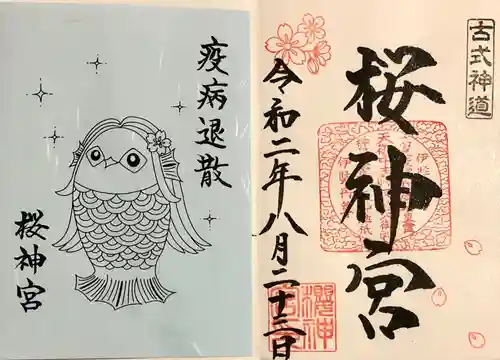 古式神道
桜神宮
令和二年八月二十三日
櫻神
疫病退散
桜神宮